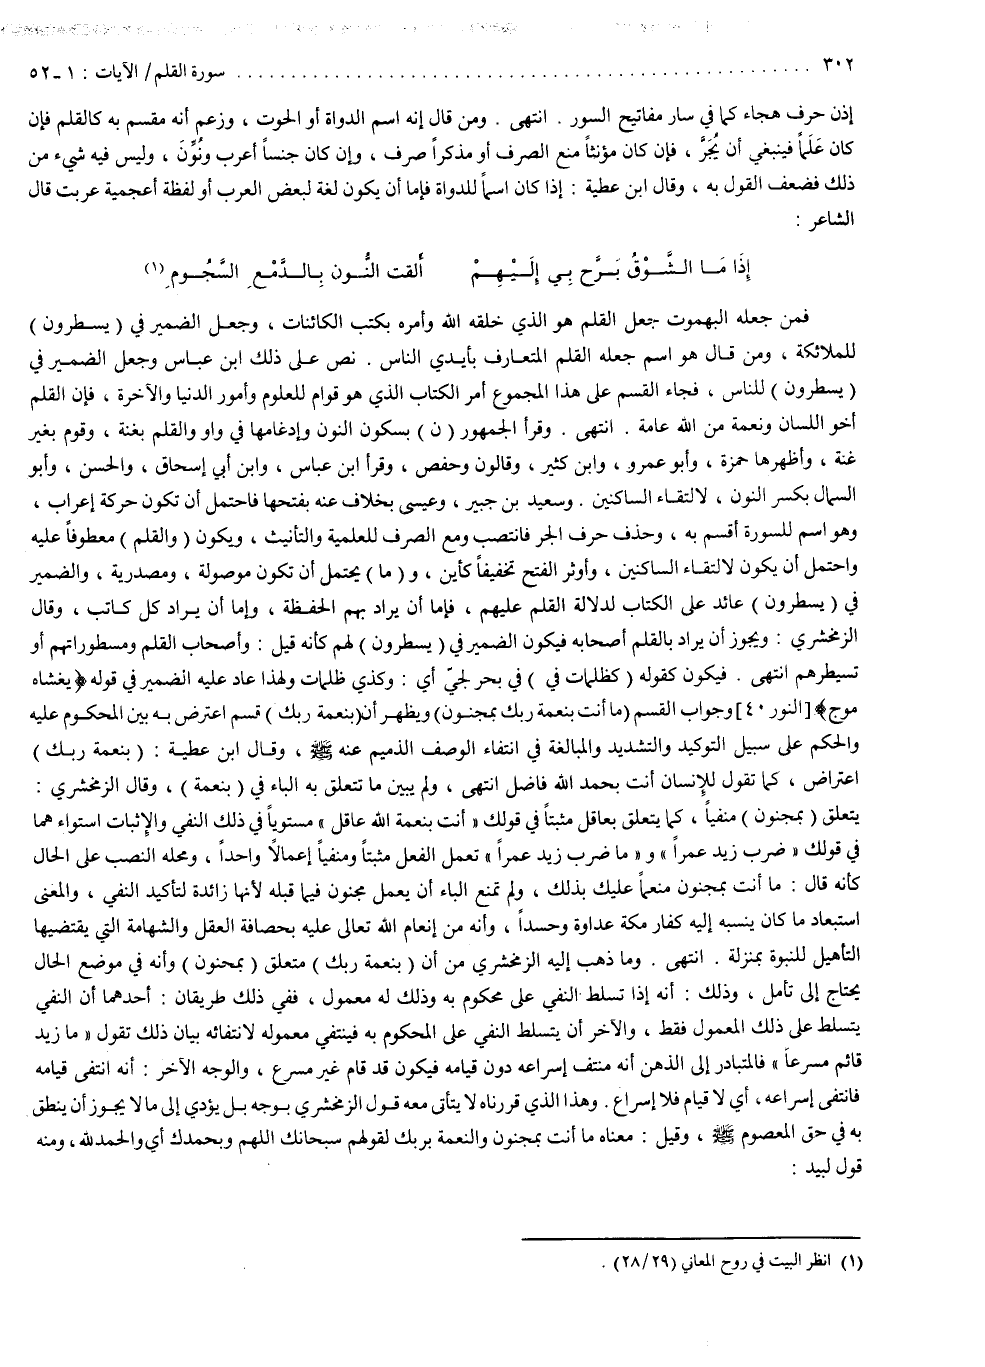 ٣٠٢ ........................................ سورة القلم/ الآيات : ١ ـ ٥٢
إذن حرف هجاء كما في سار مفاتيح السور . انتهى . ومن قال إنه اسم الدواة أو الحوت ، وزعم أنه مقسم به كالقلم فإن
كان عَلَماً فينبغي أن يُجَرَّ ، فإن كان مؤنثاً منع الصرف أو مذكراً صرف ، وإن كان جنساً أعرب ونُوِّنَ ، وليس فيه شيء من
ذلك فضعف القول به ، وقال ابن عطية : إذا كان اسماً للدواة فإما أن يكون لغة لبعض العرب أو لفظة أعجمية عربت قال
الشاعر :
إِذَا مَـا الشَّـوْقُ بَـرَّح بِي إِلَـيْـهِـمْ ألقت النُّـون بِـالـدَّمْـعِ السَّجُـوم (١)
فمن جعله البهموت جعل القلم هو الذي خلقه الله وأمره بكتب الكائنات ، وجعـل الضمير في ( يسـطرون )
للملائكة ، ومن قـال هـو اسم جعله القلم المتعارف بأيـدي الناس . نص عـلى ذلك ابن عبـاس وجعل الضمـير في
( يسطرون ) للناس ، فجاء القسم على هذا المجموع أمر الكتاب الذي هو قوام للعلوم وأمور الدنيا والآخرة ، فإن القلم
أخو اللسان ونعمة من الله عامة . انتهى . وقرأ الجمهور ( ن ) بسكون النون وإدغامها في واو والقلم بغنة ، وقوم بغير
غنة ، وأظهرها حمزة ، وأبو عمرو ، وابن كثير ، وقالون وحفص ، وقرأ ابن عباس ، وابن أبي إسحاق ، والحسن ، وأبو
السمال بكسر النون ، لالتقـاء الساكنين . وسعيد بن جبير ، وعيسى بخلاف عنه بفتحها فاحتمل أن تكون حركة إعراب ،
وهو اسم للسورة أقسم به ، وحذف حرف الجر فانتصب ومع الصرف للعلمية والتأنيث ، ويكون ( والقلم ) معطوفاً عليه
واحتمل أن يكون لالتقـاء الساكنين ، وأوثر الفتح تخفيفاً كأين ، و ( ما ) يحتمل أن تكون موصولة ، ومصدرية ، والضمير
في ( يسطرون ) عائد على الكتاب لدلالة القلم عليهم ، فإما أن يراد بهم الحفظة ، وإما أن يـراد كل كـاتب ، وقال
الزمخشري : ويجوز أن يراد بالقلم أصحابه فيكون الضمير في ( يسطرون ) لهم كأنه قيل : وأصحاب القلم ومسطوراتهم أو
تسيطرهم انتهى . فيكون كقوله ( كظلمات في ) في بحر لجيّ أي : وكذي ظلمات ولهذا عاد عليه الضمير في قوله ﴿ يغشاه
موج﴾ [ النور ٤٠ ] وجواب القسم (ما أنت بنعمة ربك بمجنون) ويظهـر أن(بنعمة ربك ) قسم اعترض بـه بين المحكوم عليه
والحكم على سبيل التوكيد والتشديد والمبالغة في انتفاء الوصف الذميم عنه ﷺ ، وقـال ابن عطيـة : ( بنعمة ربـك )
اعتراض ، كما تقول للإنسان أنت بحمد الله فاضل انتهى ، ولم يبين ما تتعلق به الباء في ( بنعمة ) ، وقال الزمخشري :
يتعلق ( بمجنون ) منفياً ، كما يتعلق بعاقل مثبتاً في قولك « أنت بنعمة الله عاقل » مستوياً في ذلك النفي والإثبات استواء هما
في قولك « ضرب زيد عمراً » و « ما ضرب زيد عمراً » تعمل الفعل مثبتاً ومنفياً إعمالًا واحداً ، ومحله النصب على الحال
كأنه قال : ما أنت بمجنون منعماً عليك بذلك ، ولم تمنع الباء أن يعمل مجنون فيما قبله لأنها زائدة لتأكيد النفي ، والمعنى
استبعاد ما كان ينسبه إليه كفار مكة عداوة وحسداً ، وأنه من إنعام الله تعالى عليه بحصافة العقل والشهامة التي يقتضيها
التأهيل للنبوة بمنزلة . انتهى . وما ذهب إليه الزمخشري من أن ( بنعمة ربك ) متعلق ( بمحنون ) وأنه في موضع الحال
يحتاج إلى تأمل ، وذلك : أنه إذا تسلط النفي على محكوم به وذلك له معمول ، ففي ذلك طريقان : أحدهما أن النفي
يتسلط على ذلك المعمول فقط ، والآخر أن يتسلط النفي على المحكوم به فينتفي معموله لانتفائه بيان ذلك تقول « ما زيد
قائم مسرعاً » فالمتبادر إلى الذهن أنه منتف إسراعه دون قيامه فيكون قد قام غير مسرع ، والوجه الآخر : أنه انتفى قيامه
فانتفى إسراعه، أي لا قيام فلا إسراع . وهذا الذي قررناه لا يتأتى معه قول الزمخشري بـوجه بـل يؤدي إلى ما لا يجوز أن ينطق
به في حق المعصوم ﷺ ، وقيل : معناه ما أنت بمجنون والنعمة بربك لقولهم سبحانك اللهم وبحمدك أي والحمد لله، ومنه
قول لبيد :
(١) انظر البيت في روح المعاني (٢٨/٢٩) .